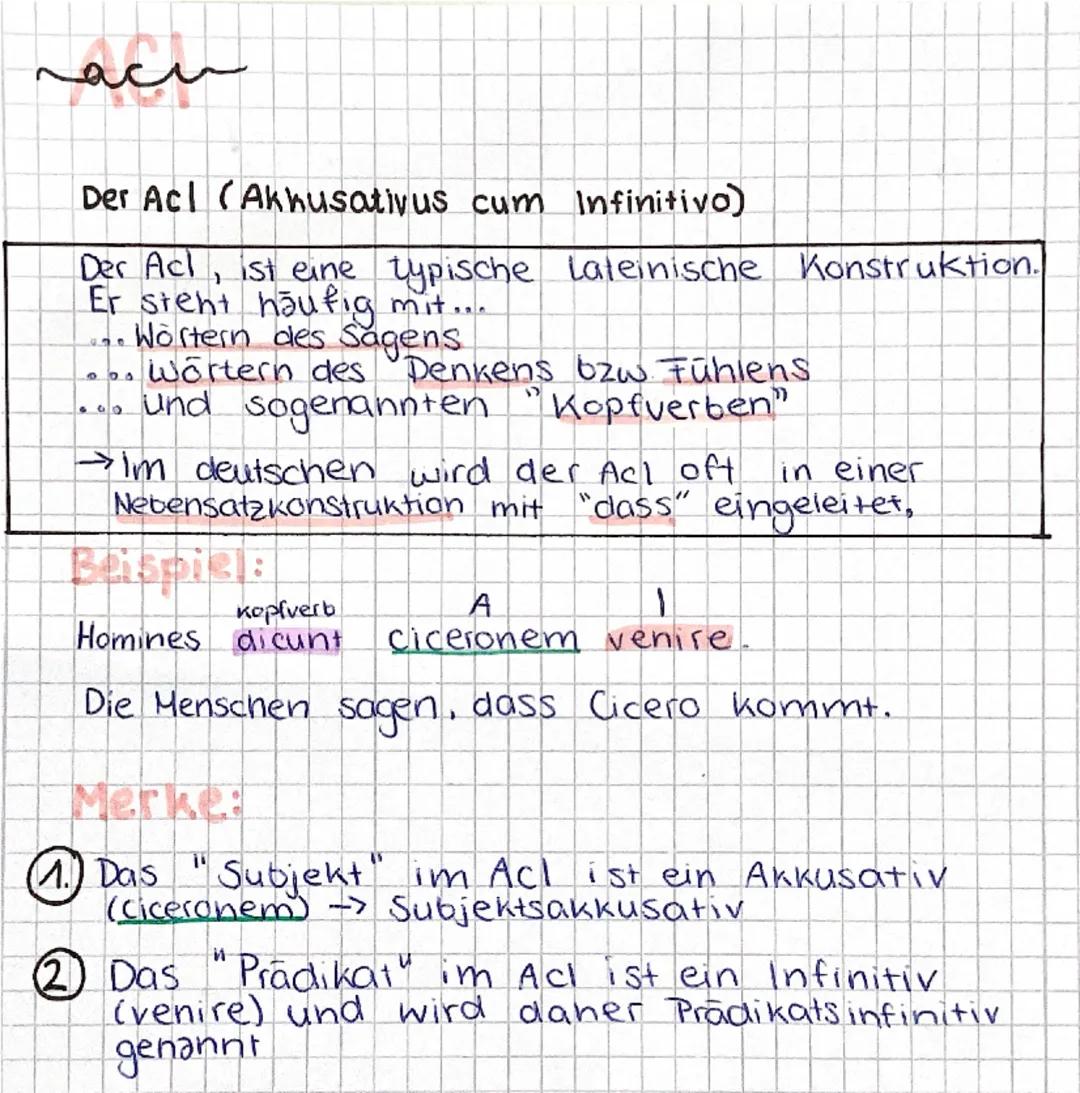 ACI
aci
Der AcI (Akkusativus cum Infinitivo)
Der AcI, ist eine typische lateinische Konstruktion.
Er steht häufig mit...
... Wörtern des Sagens
... Wörtern des Denkens bzw. Fühlens
... und sogenannten "Kopfverben"
→ Im deutschen wird der AcI oft in einer
Nebensatzkonstruktion mit "dass" eingeleitet,
Beispiel:
Kopfverb A I
Homines dicunt ciceronem venire.
Die Menschen sagen, dass Cicero kommt.
Merke:
1. Das "Subjekt" im AcI ist ein Akkusativ
(ciceronem) → Subjektsakkusativ
2 Das "Prädikat" im AcI ist ein Infinitiv
(venire) und wird daher Prädikatsinfinitiv
genannt